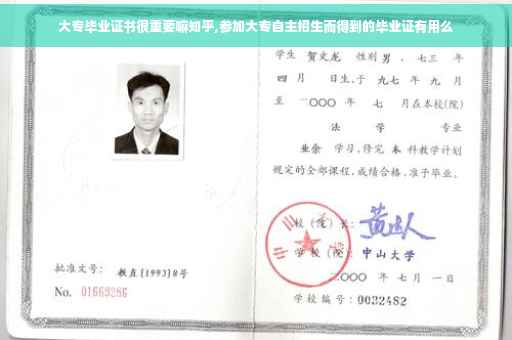 大专毕业证书很重要嘛知乎,参加大专自主招生而得到的毕业证有用么
学生 贺文龙 性别 男 、七三 年
四 月 日生,于 九七 年 九 月
至 二000 年 七 月在本校(院)
法 学 专业
业余 学习,修完 本 科教学计划
规定的全部课程,成绩合格,准予毕业。
校 (院) 长:
学 校 (院): 中山大学
批准文号: 教直[1993]8号
二000 年 七 月 一 日
No. 01669286
学校编号: 0032482